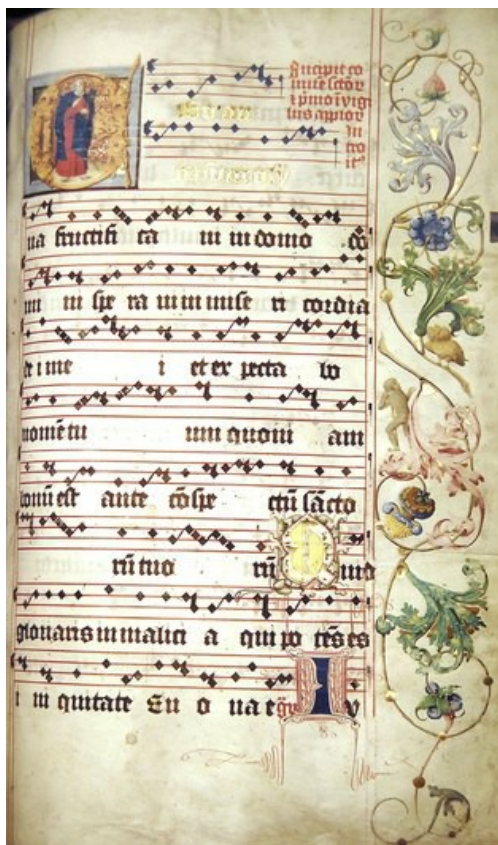 Incipit co
mune
In
tro
ua fructifi ca ui in domo do
mi ni spe ra ui in mise ri cordia
de i me i et ex pecta bo
nomē tu um quoni am
bonū est ante cōspe ctū sācto
rū tuo rū Quid
gloriaris in malici a qui po tēs es
i in iquitate Eu o uae